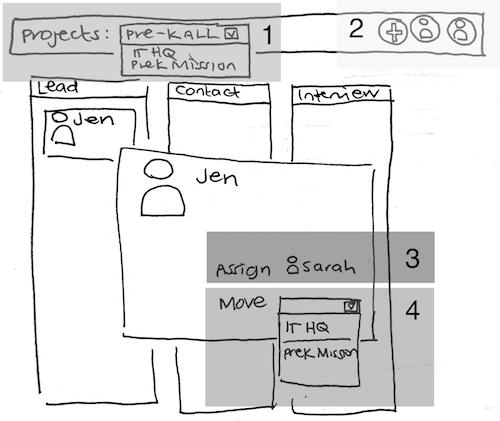 Projects: Pre-K ALL 1 2
IT HQ
PreK Mission
Lead Contact Interview
Jen
Jen
Assign Sarah 3
Move 4
IT HQ
PreK Mission